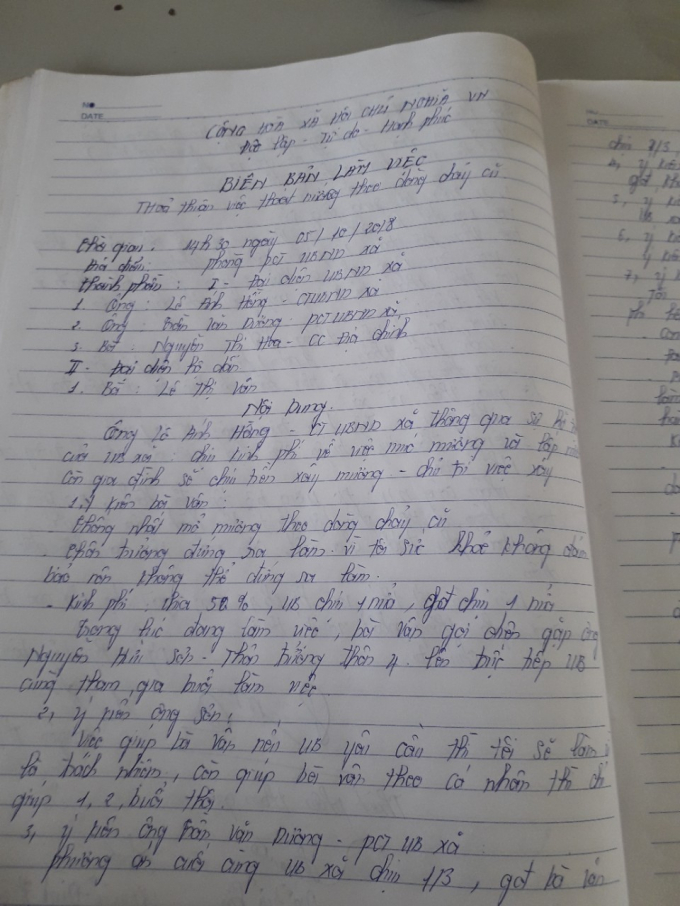 NO
DATE
CỘNG HÒA XÃ HỘI CHỦ NGHĨA VN
Độc lập - Tự do - Hạnh phúc
BIÊN BẢN LÀM VIỆC
Thoả thuận việc thoát nước theo dòng chảy cũ.
thời gian: 14h30 ngày 05/10/2018
Địa điểm: phòng pct UBND xã
thành phần: I - Đại diện UBND xã
1. Ông: Lê Anh Hồng - CTUBND xã
2. Ông: Trần Văn Dương - pCTUBND xã,
3. Bà: Nguyễn Thị Hoa - CC Địa chính
II - Đại diện hộ dân
1. Bà: Lê Thị Vân
Nội Dung.
Ông Lê Anh Hồng - CT UBND xã thông qua
của UB xã: chịu kinh phí về việc múc mương và lấp
còn gia đình sẽ chịu tiền xây mương - chủ trì việc xây
1, ý kiến bà Vân:
thống nhất mở mương theo dòng chảy cũ
- thôn trưởng đứng ra làm. vì tôi sức khoẻ không đảm
bảo nên không thể đứng ra làm.
- Kinh phí: chia 50%, UB chịu 1 nửa, gđ chịu 1 nửa
trong lúc đang làm việc, bà Vân gọi điện gặp ông
Nguyễn Hữu Sơn - Thôn trưởng thôn 4. lên trực tiếp UB
cùng tham gia buổi làm việc.
2, ý kiến ông Sơn:
việc giúp bà Vân nếu UB yêu cầu thì tôi sẽ làm
là trách nhiệm, còn giúp bà Vân theo cá nhân thì chỉ
giúp 1, 2, buổi thôi.
3, ý kiến ông Trần Văn Dương - pCT UB xã
phương án cuối cùng UB xã chịu 1/3, gđ bà Vân
DATE
chịu 2/3,
4, ý kiến
5, ý
6, ý
7, ý